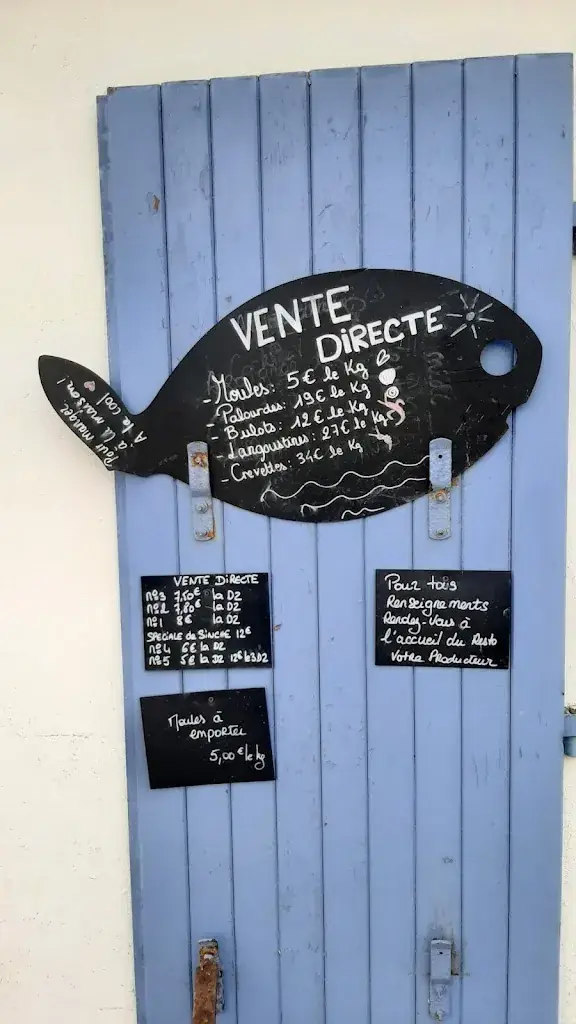 VENTE
DiRECTE
- Moules: 5€ le Kg
- Palourdes: 19€ le Kg
- Bulots: 12€ le Kg
- Langoustines: 27€ le Kg
- Crevettes: 34€ le Kg
Pour manger
à la maison!
A la cool
VENTE DiRECTE
n°3 7,50€ la DZ
n°2 7,80€ la DZ
n°1 8€ la DZ
SPECIALE de SiNCHE 12€
n°4 6€ la DZ
n°5 5€ la DZ 12€ le 3 DZ
Pour tous
Renseignements
Rendez-Vous à
l'accueil du Resto
Votre Producteur
Moules à
emporter
5,00€ le kg